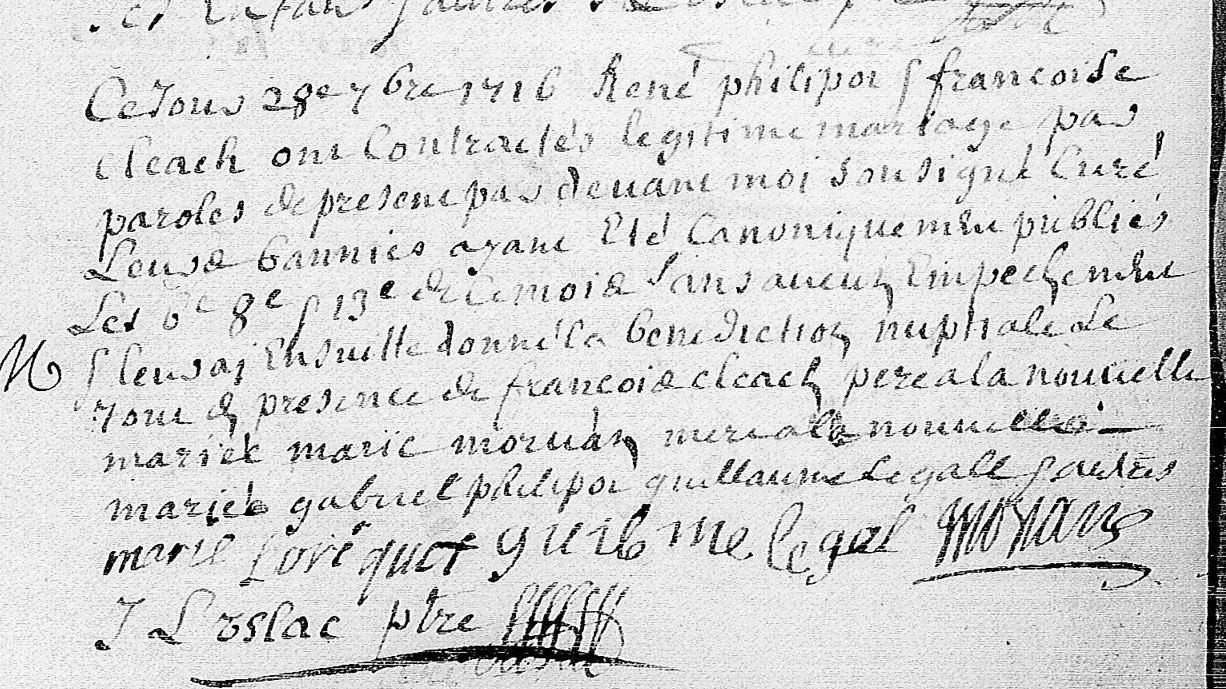 Ce jour 28e 7bre 1716 René philipot & francoise
cleach ont Contractés legitime mariage par
paroles de present par devant moi soussigné Curé
Leurs bannies ayant Eté Canoniquement publiés
Les 6e 8e & 13e de ce mois sans aucun Empechement
M & leur ai Ensuitte donné la benediction nuptiale Le
jour En presence de francois cleach pere a la nouvelle
mariée marie morvan mere a la nouvelle
mariée gabriel philipot guillaume Le gall & autres
marie Loricquet guilb me le gal
J L ptre